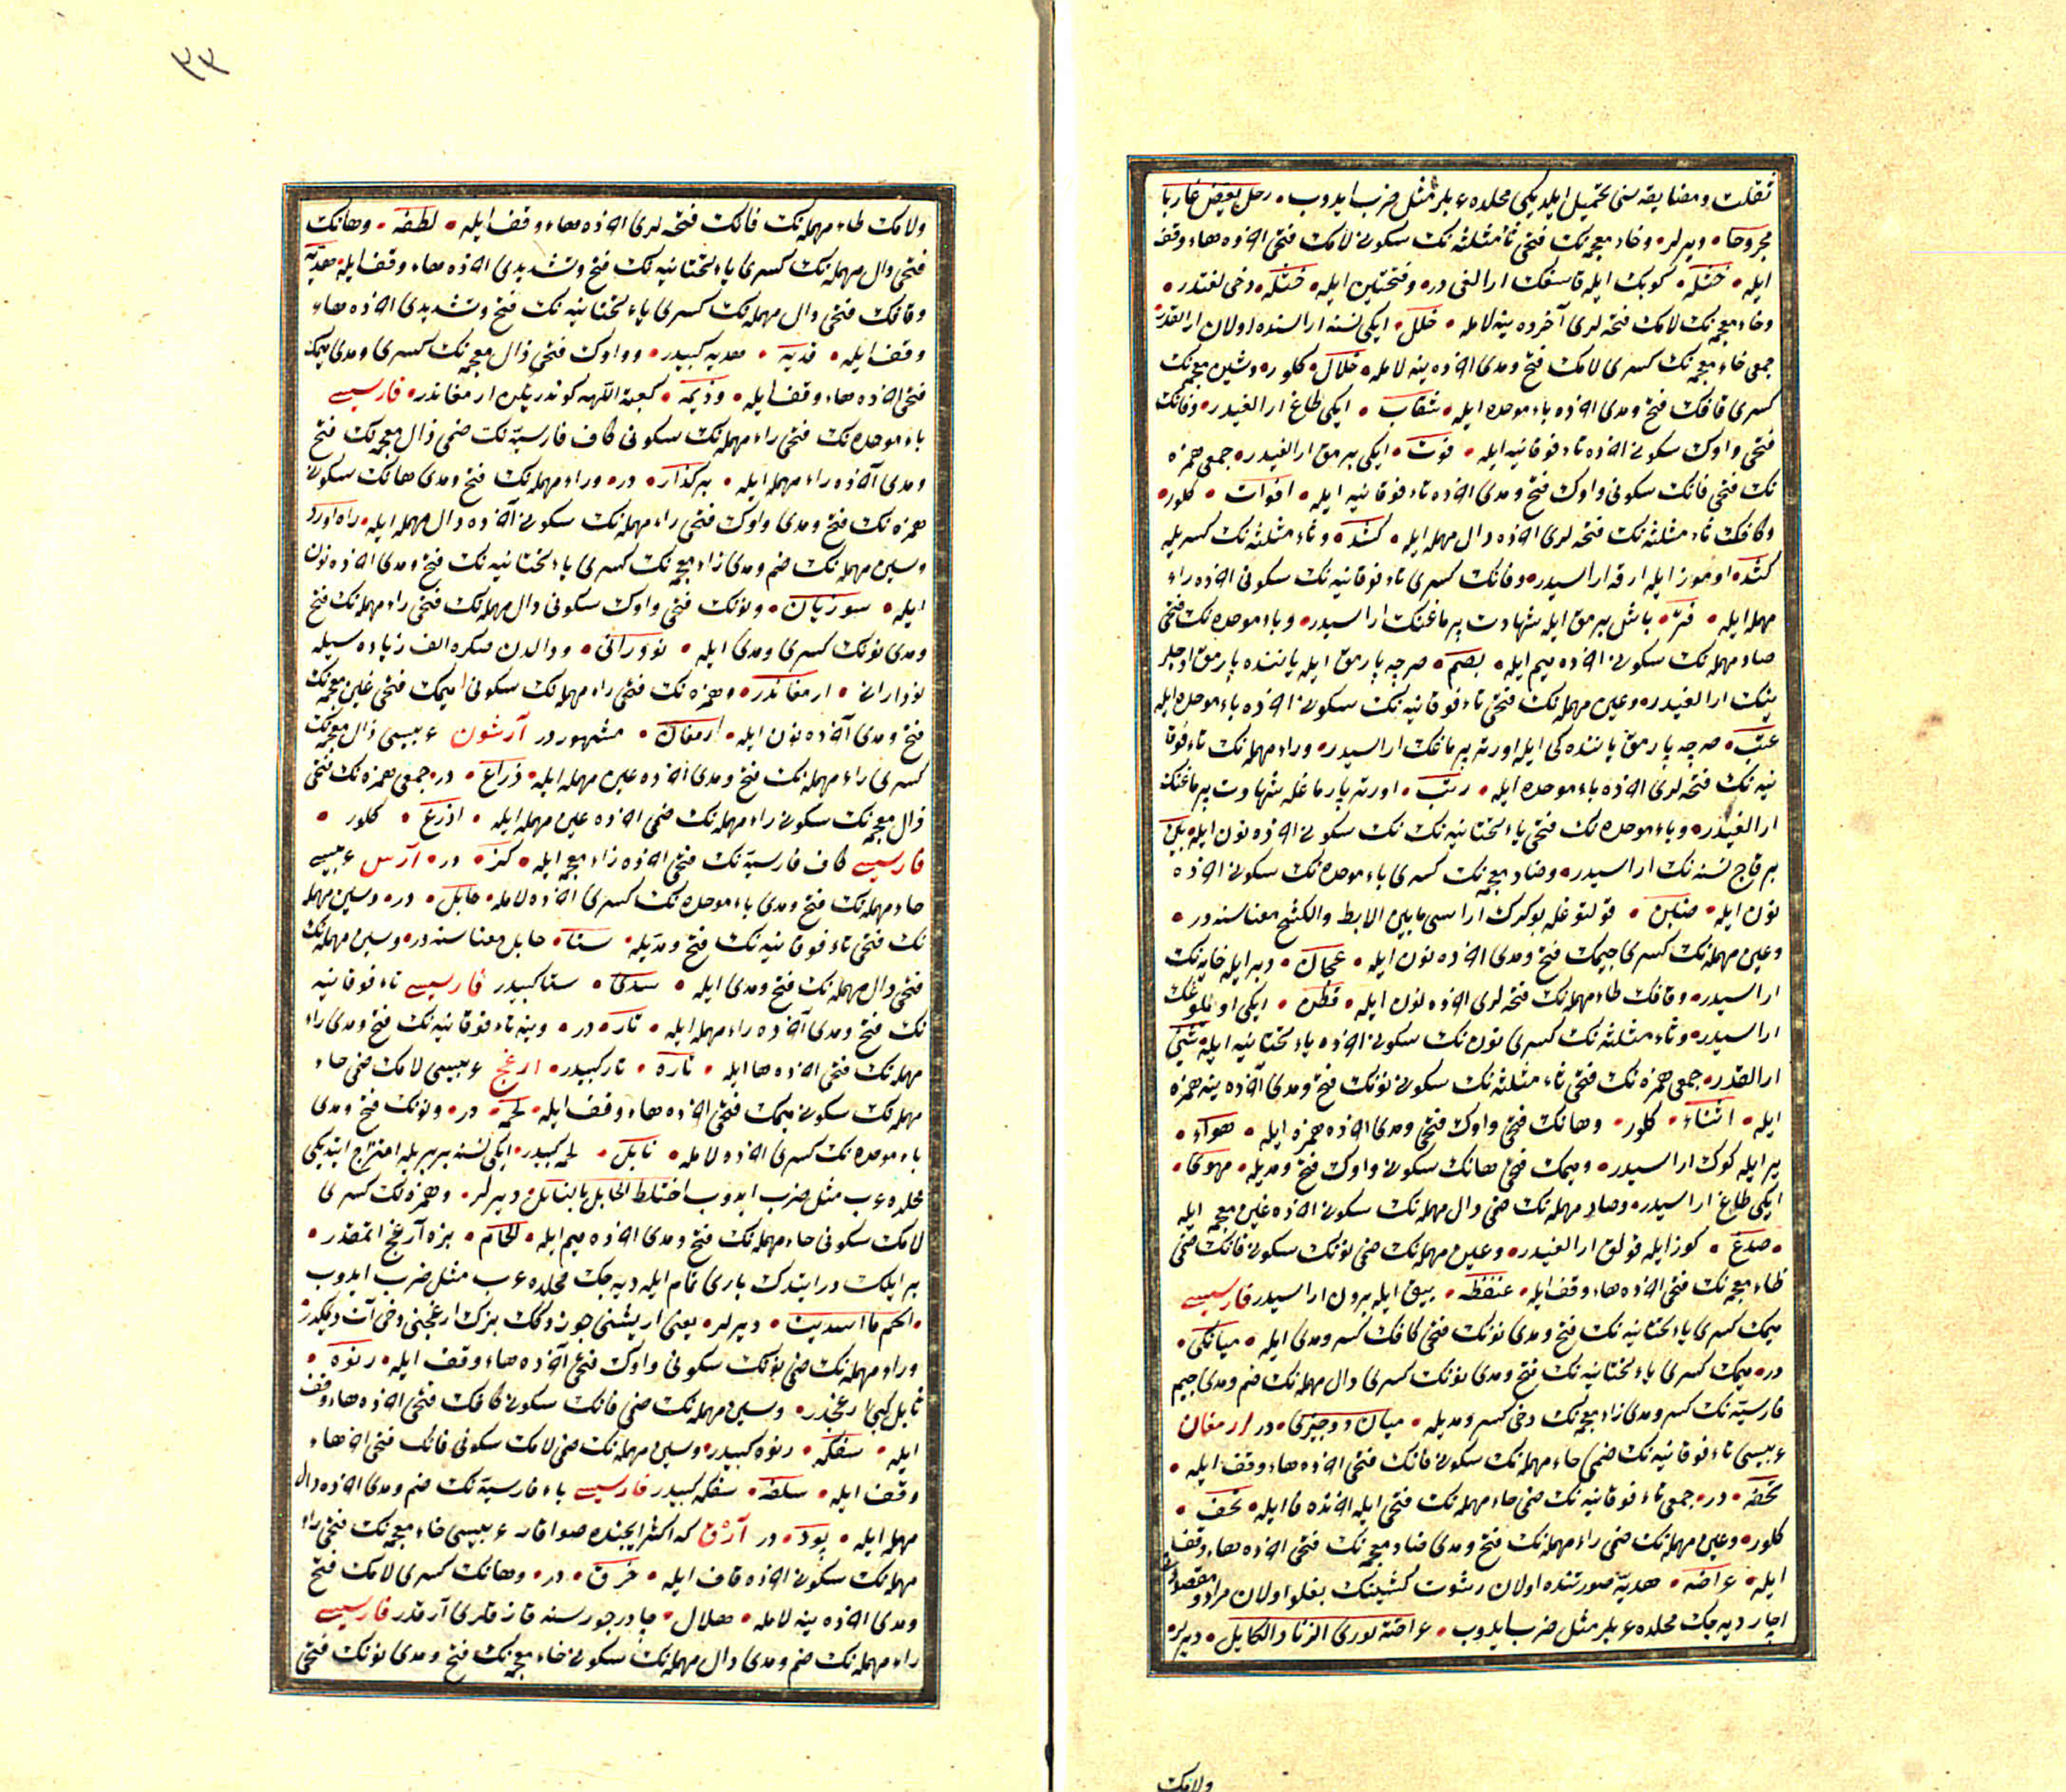 ثقلت ومضايقه سنى تحميل ايلديكى محلده عربلر مثل ضرب ايدوب • رحل يعيض غاربا
مجروحا • ديرلر • وخاء معجمه‌نك فتحى ثاء مثلثه‌نك سكونى لامك فتحى اخرنده هاء وقف
ايله • خثلة • كوبك ايله قاسغك ارالغى در • وفتحتين ايله • خثلة • دخى لغتدر •
وخاء معجمه‌نك لامك فتحه لرى آخرده ينه لامله • خلل • ايكى نسنه اراسنده اولان ارالقدر
جمعى خاء معجمه‌نك كسرى لامك فتح ومدى اخرنده ينه لامله • خلال • كلور • وشين معجمه‌نك
كسرى قافك فتح ومدى اخرنده باء موحده ايله • شقاب • ايكى طاغ ارالغيدر • وفانك
فتحى واوك سكونى اخرنده تاء فوقانيه ايله • فوت • ايكى برمق ارالغيدر • جمعى همزه
نك فتحى فانك سكونى واوك فتح ومدى اخرنده تاء فوقانيه ايله • افوات • كلور •
وكافك ثاء مثلثه‌نك فتحه لرى اخرنده دال مهمله ايله • كثد • وثاء مثلثه‌نك كسريله
كثد • اوموز ايله ارقه اراسيدر • وفانك كسرى تاء فوقانيه‌نك سكونى اخرنده راء
مهمله ايله • فتر • باش برمق ايله شهادت برماغنك اراسيدر • وباء موحده‌نك ضمى
صاد مهمله‌نك سكونى اخرنده ميم ايله • بصم • صرچه پارمق ايله ياننده پارمق اوجلر
ينك ارالغيدر • وعين مهمله‌نك فتحى تاء فوقانيه‌نك سكونى اخرنده باء موحده ايله
عتب • صرچه پارمق ياننده كى ايله اورته برماغك اراسيدر • وراء مهمله‌نك تاء فوقا
نيه‌نك فتحه لرى اخرنده باء موحده ايله • رتب • اورته پارماغله شهادت برماغنك
ارالغيدر • وباء موحده‌نك فتحى ياء تحتانيه‌نك سكونى اخرنده نون ايله • بين
بر قاچ نسنه‌نك اراسيدر • وضاد معجمه‌نك كسرى باء موحده‌نك سكونى اخرنده
نون ايله • ضبن • قولتوغله بوكرك اراسى مابين الابط والكشح معناسنه در •
وعين مهمله‌نك كسرى جيمك فتح ومدى اخرنده نون ايله • عجان • دبر ايله خايه‌نك
اراسيدر • وقافك طاء مهمله‌نك فتحه لرى اخرنده نون ايله • قطن • ايكى اويلوغك
اراسيدر • وثاء مثلثه‌نك كسرى نون‌نك سكونى اخرنده ياء تحتانيه ايله • ثنى
ارالقدر • جمعى همزه‌نك فتحى ثاء مثلثه‌نك سكونى نونك فتح ومدى آخرنده ينه همزه
ايله • اثناء • كلور • وهانك فتحى واوك فتحى ومدى اخرنده همزه ايله • هواء •
ير ايله كوك اراسيدر • وميمك فتحى هانك سكونى واوك فتح ومديله • مهوى •
ايكى طاغ اراسيدر • وصاد مهمله‌نك ضمى دال مهمله‌نك سكونى اخرنده غين معجمه ايله
• صدغ • كوز ايله قولق ارالغيدر • وعين مهمله‌نك ضمى نونك سكونى فانك ضمى
ظاء معجمه‌نك فتحى اخرنده هاء وقف ايله • عنفظه • بيق ايله برون اراسيدر فارسيسى
ميمك كسرى ياء تحتانيه‌نك فتح ومدى نونك فتحى كافك كسر ومدى ايله • ميانكى •
در • ميمك كسرى ياء تحتانيه‌نك فتح ومدى نونك كسرى دال مهمله‌نك ضم ومدى جيم
فارسيه‌نك كسر ومدى زاء معجمه‌نك دخى كسر ومديله • ميان دوچيزى • در ارمغان
عربيسى تاء فوقانيه‌نك ضمى حاء مهمله‌نك سكونى فانك فتحى اخرنده هاء وقف ايله •
تحفه • در • جمعى تاء فوقانيه‌نك ضمى حاء مهمله‌نك فتحى ايله اخرنده فا ايله • تحف •
كلور • وعين مهمله‌نك ضمى راء مهمله‌نك فتح ومدى ضاد معجمه‌نك فتحى اخرنده هاء وقف
ايله • عراضه • هديه صورتنده اولان رشوت كشينك بغلو اولان مراد ومقصودين
اچار ديه‌جك محلده عربلر مثل ضرب ايدوب • عراضة تورى الزناد الكايل • ديرلر •
ولامك
٣٣
ولامك طاء مهمله‌نك فانك فتحه لرى اخرنده هاء وقف ايله • لطفه • وهانك
فتحى دال مهمله‌نك كسرى ياء تحتانيه‌نك فتح وتشديدى اخرنده هاء وقف ايله • هديه
وقافك فتحى دال مهمله‌نك كسرى ياء تحتانيه‌نك فتح وتشديدى اخرنده هاء
وقف ايله • قديه • هديه كبيدر • وواوك فتحى ذال معجمه‌نك كسرى ومدى ميمك
فتحى اخرنده هاء وقف ايله • وذيمه • كعبة اللهه كوندريلن ارمغاندر • فارسيسى
باء موحده‌نك فتحى راء مهمله‌نك سكونى كاف فارسيه‌نك ضمى ذال معجمه‌نك فتح
ومدى آخرنده راء مهمله ايله • بركذار • در • وراء مهمله‌نك فتح ومدى هانك سكونى
همزه‌نك فتح ومدى واوك فتحى راء مهمله‌نك سكونى آخرنده دال مهمله ايله • راه اورد
وسين مهمله‌نك ضم ومدى زاء معجمه‌نك كسرى ياء تحتانيه‌نك فتح ومدى اخرنده نون
ايله • سوزيان • ونونك فتحى واوك سكونى دال مهمله‌نك فتحى راء مهمله‌نك فتح
ومدى نونك كسرى ومدى ايله • نودرانى • ودالدن صكره الف زياده سيله
نودارانى • ارمغاندر • وهمزه‌نك فتحى راء مهمله‌نك سكونى ميمك فتحى غين معجمه‌نك
فتح ومدى آخرنده نون ايله • ارمغان • مشهوردر آرشون عربيسى ذال معجمه‌نك
كسرى راء مهمله‌نك فتح ومدى اخرنده عين مهمله ايله • ذراع • در • جمعى همزه‌نك فتحى
ذال معجمه‌نك سكونى راء مهمله‌نك ضمى اخرنده عين مهمله ايله • اذرع • كلور •
فارسيسى كاف فارسيه‌نك فتحى اخرنده زاء معجمه ايله • كز • در • آرس عربيسى
حاء مهمله‌نك فتح ومدى باء موحده‌نك كسرى اخرنده لامله • حابل • در • وسين مهمله
نك فتحى تاء فوقانيه‌نك فتح ومديله • ستا • حابل معناسنه در • وسين مهمله‌نك
فتحى دال مهمله‌نك فتح ومدى ايله • سدى • ستا كبيدر فارسيسى تاء فوقانيه
نك فتح ومدى آخرنده راء مهمله ايله • تار • در • وينه تاء فوقانيه‌نك فتح ومدى راء
مهمله‌نك فتحى اخرنده ها ايله • تاره • تار كبيدر • ارغج عربيسى لامك ضمى حاء
مهمله‌نك سكونى ميمك فتحى اخرنده هاء وقف ايله • لحمه • در • ونونك فتح ومدى
باء موحده‌نك كسرى اخرنده لامله • نابل • لحمه كبيدر • ايكى نسنه بربريله امتزاج ايتديكى
محلده عرب مثل ضرب ايدوب اختلط الحابل بالنابل ديرلر • وهمزه‌نك كسرى
لامك سكونى حاء مهمله‌نك فتح ومدى اخرنده ميم ايله • الحام • بزه آرغج اتمقدر •
بر ايلكه در ايتدك بارى تمام ايله ديه‌جك محلده عرب مثل ضرب ايدوب
• الحم ما اسديت • ديرلر • يعنى اريشنى چوزدكك بزك ارغجنى دخى آت ديمكدر
وراء مهمله‌نك ضمى نونك سكونى واوك فتحى آخرنده هاء وقف ايله • رنوه •
نابل كبى ارغجدر • وسين مهمله‌نك ضمى فانك سكونى كافك فتحى اخرنده هاء وقف
ايله • سفكه • رنوه كبيدر • وسين مهمله‌نك ضمى لامك سكونى فانك فتحى اخرنده هاء
وقف ايله • سلفه • سفكه كبيدر فارسيسى باء فارسيه‌نك ضم ومدى اخرنده دال
مهمله ايله • پود • در آرق كه اكثر ايچنده صو اقار عربيسى خاء معجمه‌نك فتحى راء
مهمله‌نك سكونى اخرنده قاف ايله • خرق • در • وهانك كسرى لامك فتح
ومدى اخرنده ينه لامله • هلال • چادر جورسنه قازقلرى آرقدر فارسيسى
راء مهمله‌نك ضم ومدى دال مهمله‌نك سكونى خاء معجمه‌نك فتح ومدى نونك فتحى